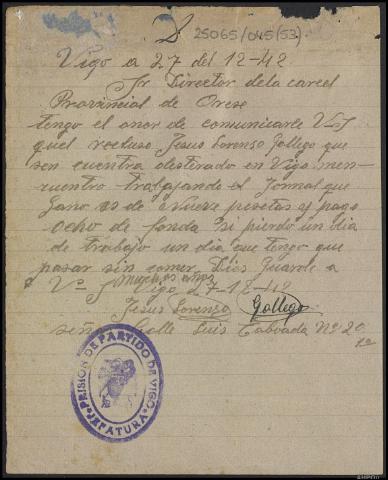 2 25065/045(53)
Vigo a 27 del 12-42
Sr Director dela carcel
Provincial de Orese
tengo el onor de comunicarle V.S
quel recluso Jesus Lorenzo Gallego que
sen cuentra desterado en Vigo men-
cuentro trabajando el Jornal que
Gano es de Nueve pesetas y pago
ocho de fonda si pierdo un dia
de trabajo un dia que tengo que
pasar sin comer Dios Guarde a
muchos años
Vª S Vigo 27-12-42
Jesus Lorenzo Gallego
señas Calle Luis Taboada Nº 20
PRISIÓN DE PARTIDO DE VIGO
JEFATURA